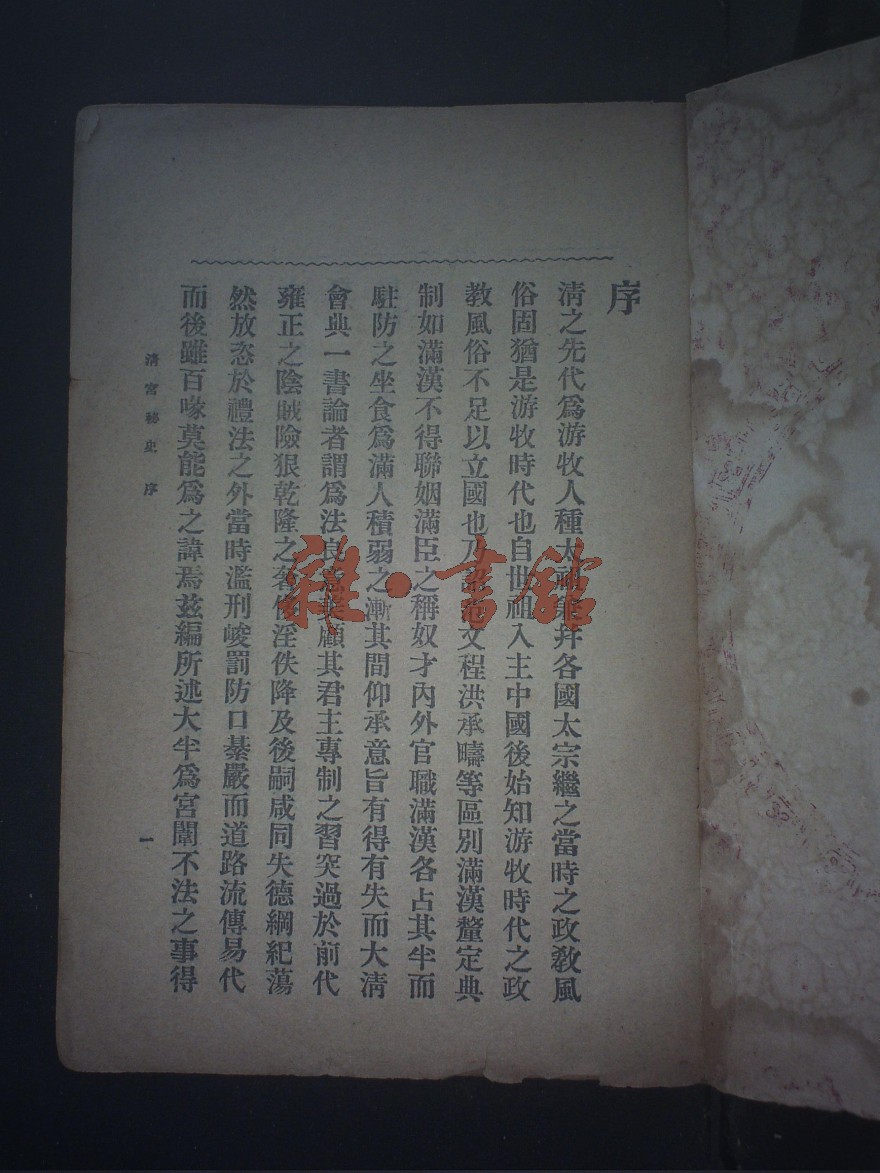 序
清之先代爲游牧人種太祖幷各國太宗繼之當時之政教風
俗固猶是游牧時代也自世祖入主中國後始知游牧時代之政
教風俗不足以立國也乃詔范文程洪承疇等區別滿漢釐定典
制如滿漢不得聯姻滿臣之稱奴才內外官職滿漢各占其半而
駐防之坐食爲滿人積弱之漸其間仰承意旨有得有失而大清
會典一書論者謂爲法良意美顧其君主專制之習突過於前代
雍正之陰賊險狠乾隆之奢侈淫佚降及後嗣咸同失德綱紀蕩
然放恣於禮法之外當時濫刑峻罰防口綦嚴而道路流傳易代
而後雖百喙莫能爲之諱焉茲編所述大半爲宮闈不法之事得
清宮秘史 序
一
雜·書館